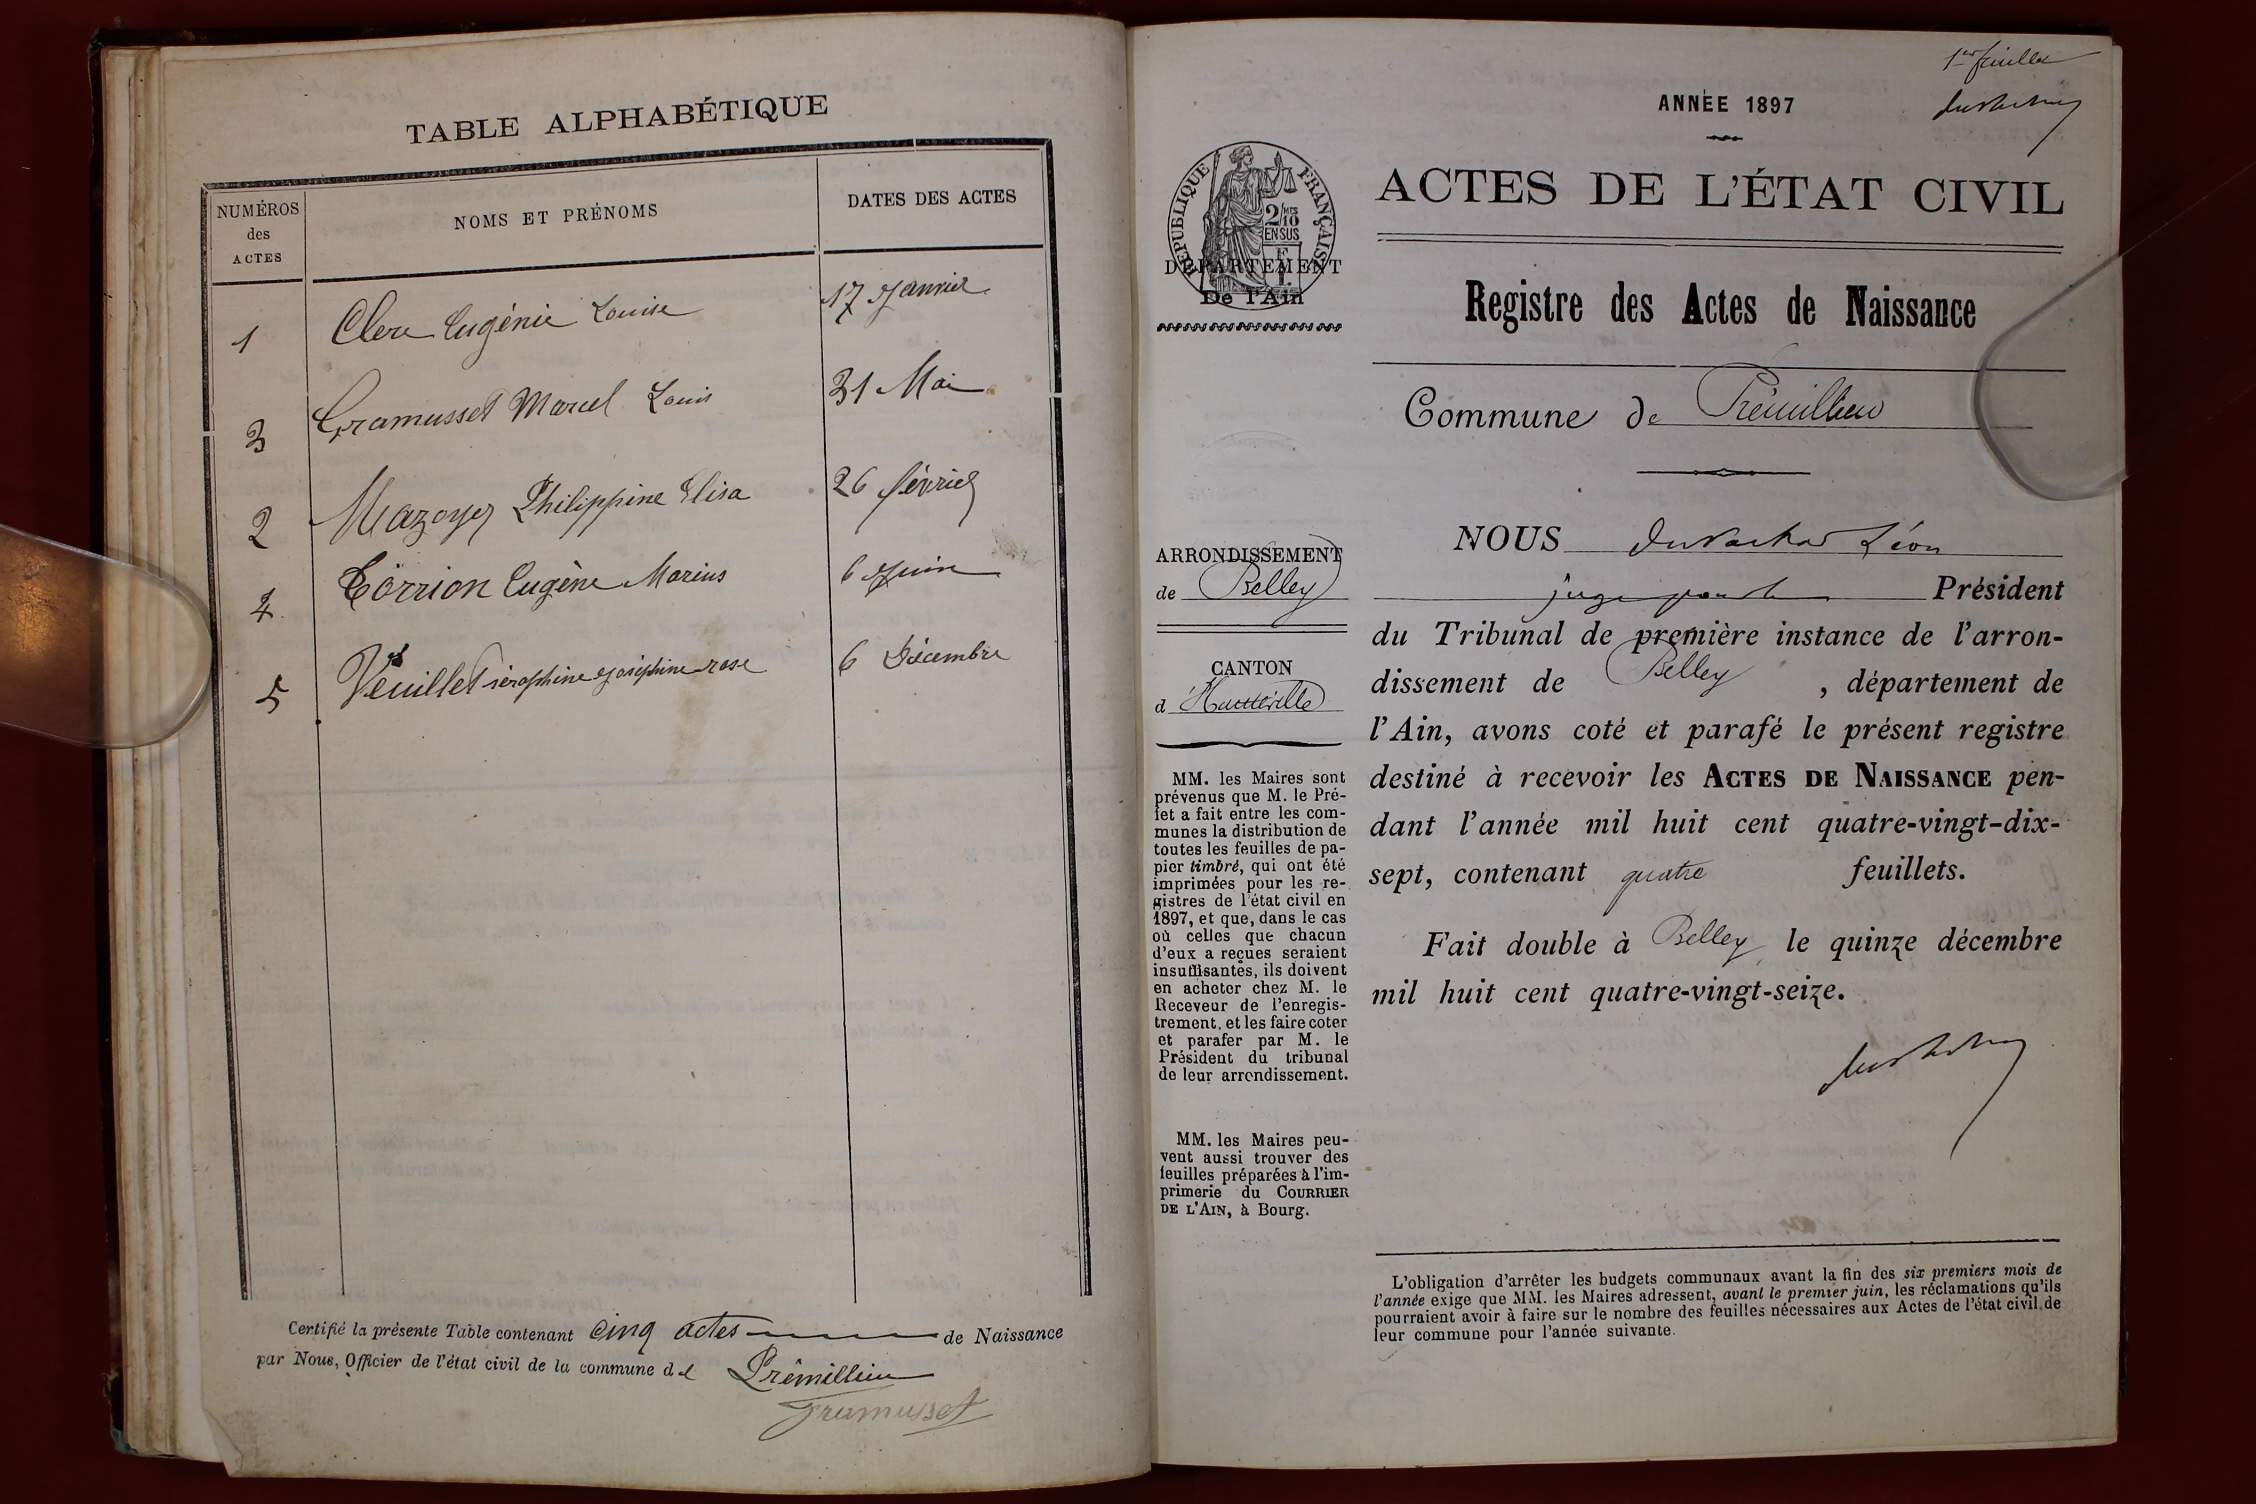 TABLE ALPHABÉTIQUE
NUMÉROS
des
ACTES
NOMS ET PRÉNOMS
DATES DES ACTES
1 Clerc Eugénie Louise 17 Janvier
3 Gramusset Marcel Louis 31 Mai
2 Mazoyer Philippine Elisa 26 février
4 Corrion Eugène Marius 6 Juin
5 Veuillet séraphine Joséphine rose 6 Décembre
Certifié la présente Table contenant cinq actes de Naissance
par Nous, Officier de l'état civil de la commune de Prémillieu
Gramusset
1er feuillet
ANNÉE 1897
RÉPUBLIQUE FRANÇAISE
2/10 MES
EN SUS
DÉPARTEMENT
De l'Ain
ACTES DE L'ÉTAT CIVIL
Registre des Actes de Naissance
Commune de Prémillieu
ARRONDISSEMENT
de Belley
CANTON
d'Hauteville
MM. les Maires sont
prévenus que M. le Pré-
fet a fait entre les com-
munes la distribution de
toutes les feuilles de pa-
pier timbré, qui ont été
imprimées pour les re-
gistres de l'état civil en
1897, et que, dans le cas
où celles que chacun
d'eux a reçues seraient
insuffisantes, ils doivent
en acheter chez M. le
Receveur de l'enregis-
trement, et les faire coter
et parafer par M. le
Président du tribunal
de leur arrondissement.
MM. les Maires peu-
vent aussi trouver des
feuilles préparées à l'im-
primerie du COURRIER
DE L'AIN, à Bourg.
NOUS Léon
juge pour le Président
du Tribunal de première instance de l'arron-
dissement de Belley, département de
l'Ain, avons coté et parafé le présent registre
destiné à recevoir les ACTES DE NAISSANCE pen-
dant l'année mil huit cent quatre-vingt-dix-
sept, contenant quatre feuillets.
Fait double à Belley, le quinze décembre
mil huit cent quatre-vingt-seize.
L'obligation d'arrêter les budgets communaux avant la fin des six premiers mois de
l'année exige que MM. les Maires adressent, avant le premier juin, les réclamations qu'ils
pourraient avoir à faire sur le nombre des feuilles nécessaires aux Actes de l'état civil de
leur commune pour l'année suivante.